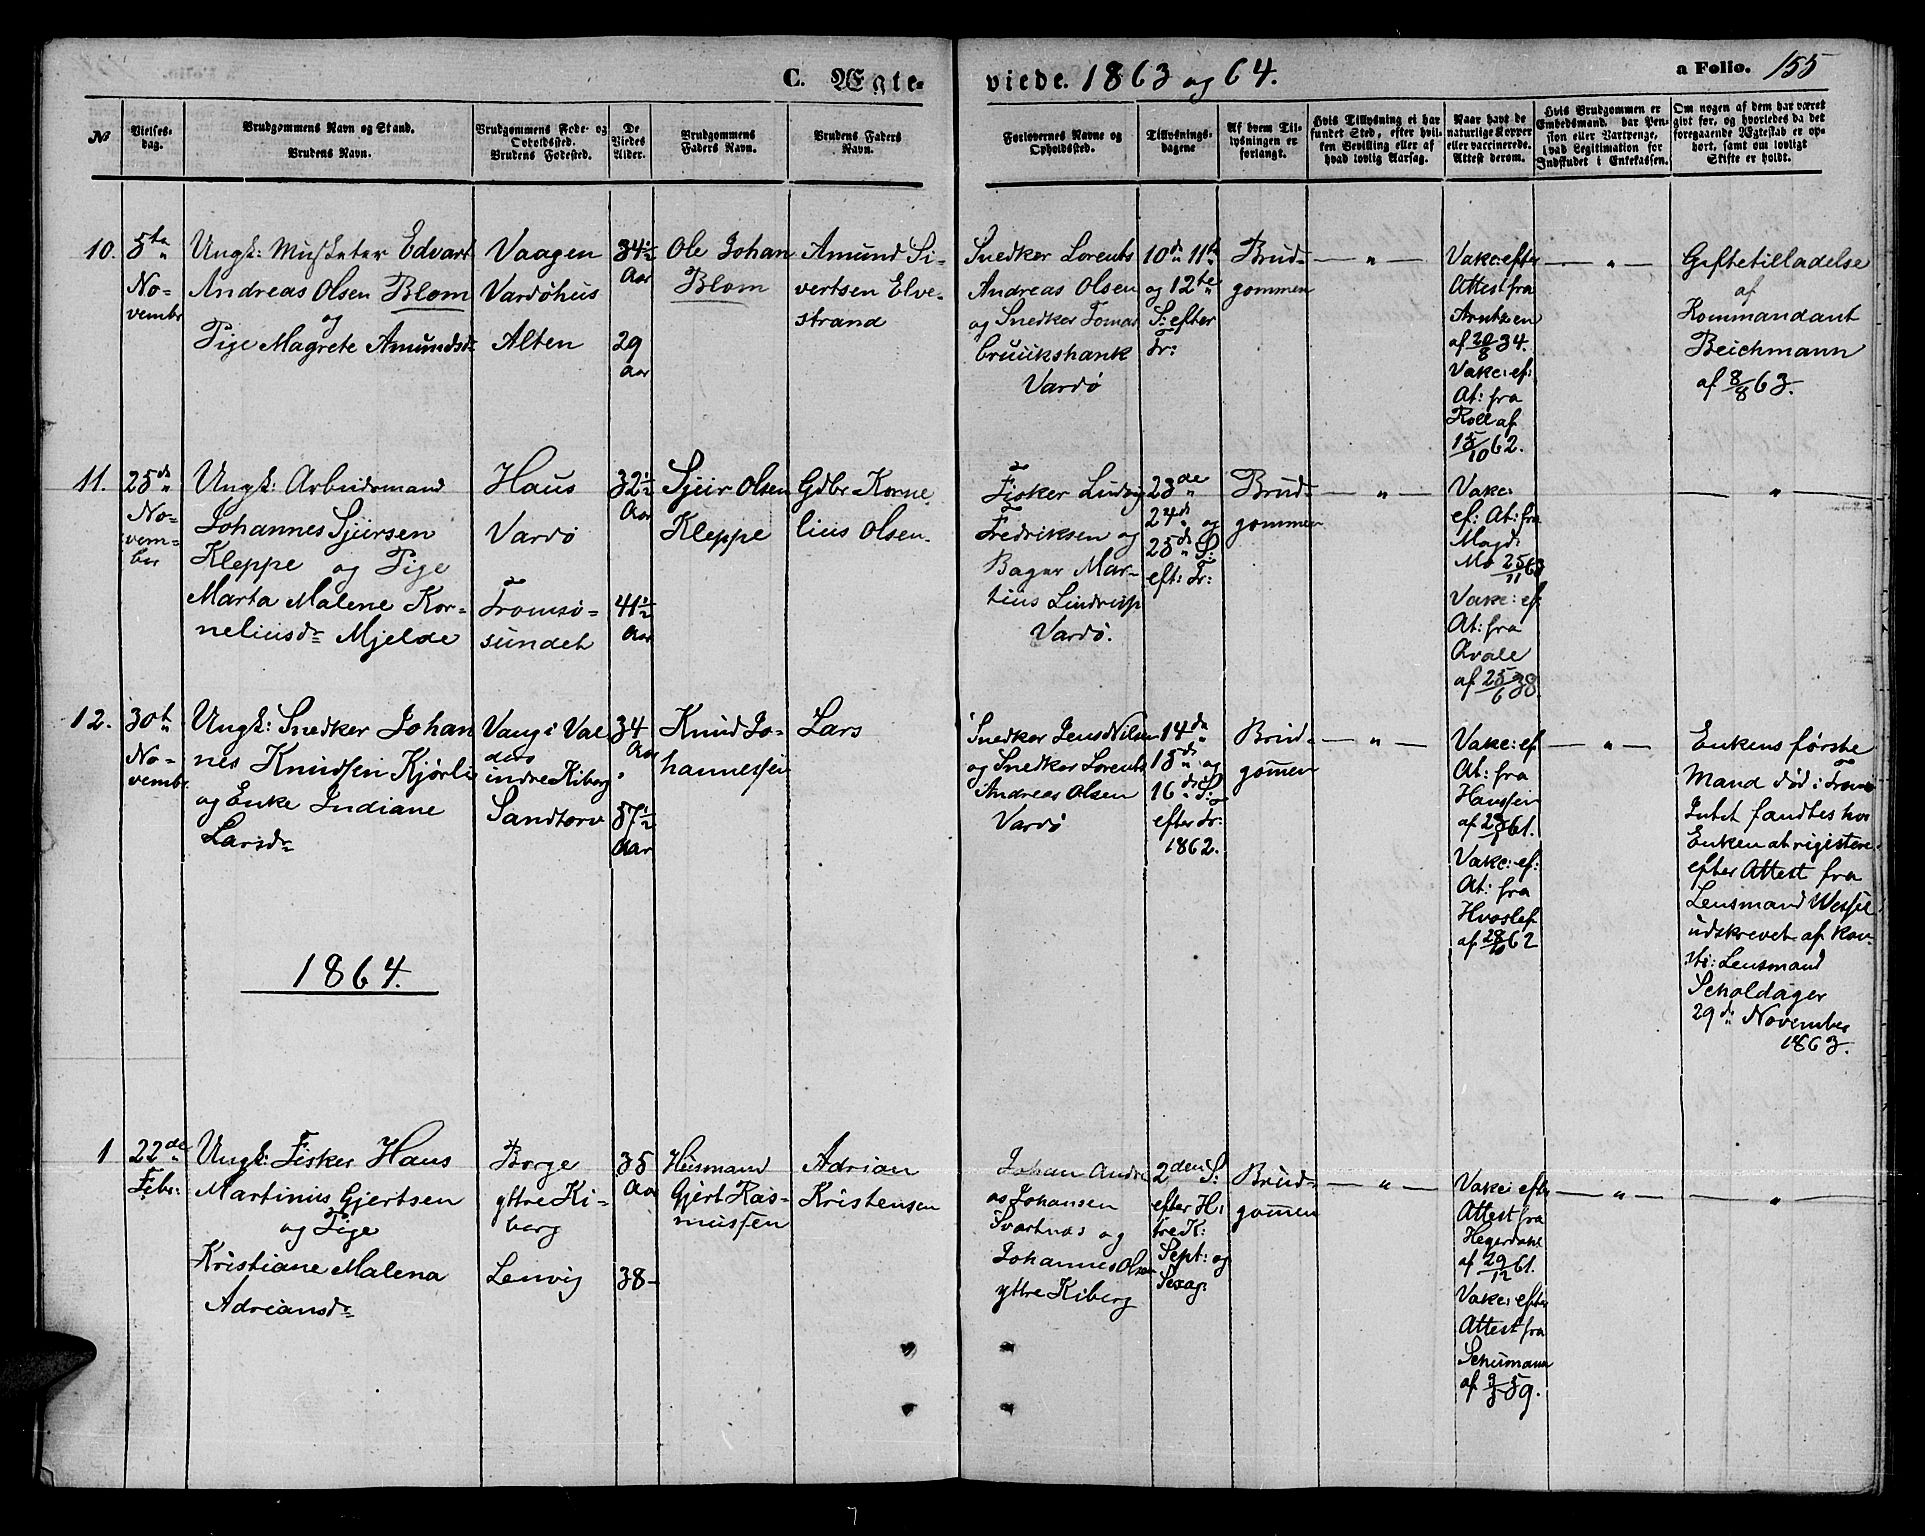 C. Ægte-
viede. 1863 og 64.
a Folio. 155
No
Vielses-
dag.
Brudgommens Navn og Stand.
Brudens Navn.
Brudgommens Føde- og
Opholdssted.
Brudens Fødested.
De
Viedes
Alder.
Brudgommens
Faders Navn.
Brudens Faders
Navn.
Forlovernes Navne og
Opholdssted.
Tillysnings-
dagene
Af hvem Til-
lysningen er
forlangt.
Hvis Tillysning ei har
fundet Sted, efter hvil-
ken Bevilling eller af
hvad lovlig Aarsag.
Naar havt de
naturlige Kopper
eller vaccinerede.
Attest derom.
Hvis Brudgommen er
Embedsmand, har Pen-
sion eller Vartpenge,
hvad Legitimation for
Indskudet i Enkekassen.
Om nogen af dem har været
gift før, og hvorledes da det
foregaaende Ægteskab er op-
hørt, samt om lovligt
Skifte er holdt.
10.
5te
No-
vembr
Ungk: Musketer Edvart
Andreas Olsen Blom
og
Pige Magrete Amundsdr
Vaagen
Vardøhus
Alten
34½
Aar
29
Aar
Ole Johan
Blom
Amund Si-
vertsen Elve-
strand
Snedker Lorents
Andreas Olsen
og Snedker Tomas
Cruikshank
Vardø
10de 11te
og 12te
S: efter
Tr:
Brud-
gommen
— " —
Vakc: efter
Attest fra
Arntzen
af 20/8 34.
Vakc: ef:
At: fra
Roll af
15/10 62.
— " —
Giftetilladelse
af
Kommandant
Beichmann
af 8/8 63.
11.
25de
No-
vem-
ber
Ungk: Arbeidsmand
Johannes Sjursen
Kleppe og Pige
Marta Malene Kor-
neliusdr Mjelde
Haus
Vardø
Tromsø-
sundet
32½
Aar
41½
Aar
Sjur Olsen
Kleppe
Gdbr Korne
lius Olsen.
Fisker Ludvig
Fredriksen og
Bager Mar-
tius
Vardø.
23de
24de og
25de S:
eft: Tr:
Brud-
gommen
— " —
Vakc:
ef: At: fra
Magd:
Mo 25/11 63
Vakc: ef:
At: fra
Qvale
af 25/6 38.
— " —
12.
30te
No-
vembr
Ungk: Snedker Johan
nes Knudsen Kjørli
og Enke Indiane
Larsdr
Vang i Val
ders
indre Kiberg
Sandtorv
34
Aar
57½
Aar
Knud Jo-
hannessen
Lars
Snedker Jens Nilsen
og Snedker Lorents
Andreas Olsen
Vardø
14de
15de og
16de S:
efter Tr:
1862.
Brud-
gommen
— " —
Vakc: ef
At: fra
Hanssen
af 61.
Vakc: ef:
At: fra
Hvoslef
af 28/10 62
— " —
Enkens første
Mand død i Troms
Intet fandtes hos
Enken at rigistere
efter Attest fra
Lensmand Wessel
udskrevet af Kon-
st: Lensmand
Scholdager
29de November
1863.
1864.
1
22de
Febr:
Ungk: Fisker Hans
Martinus Gjertsen
og Pige
Kristiane Malena
Adriansdr
Borge
yttre Ki-
berg
Lenvig
35
Aar
38-
Husmand
Gjert Ras-
mussen
Adrian
Kristensen
Johan Andre
as Johansen
Svartnæs og
Johannes Olsen
yttre Kiberg
2den S:
efter H:
tre K:
Sept: og
Sexag:
Brud-
gommen
— " —
Vakc: efter
Attest fra
Hegerdahl
af 29/12 61.
Vakc: efter
Attest fra
Schumann
af 59.
— " —
— " —